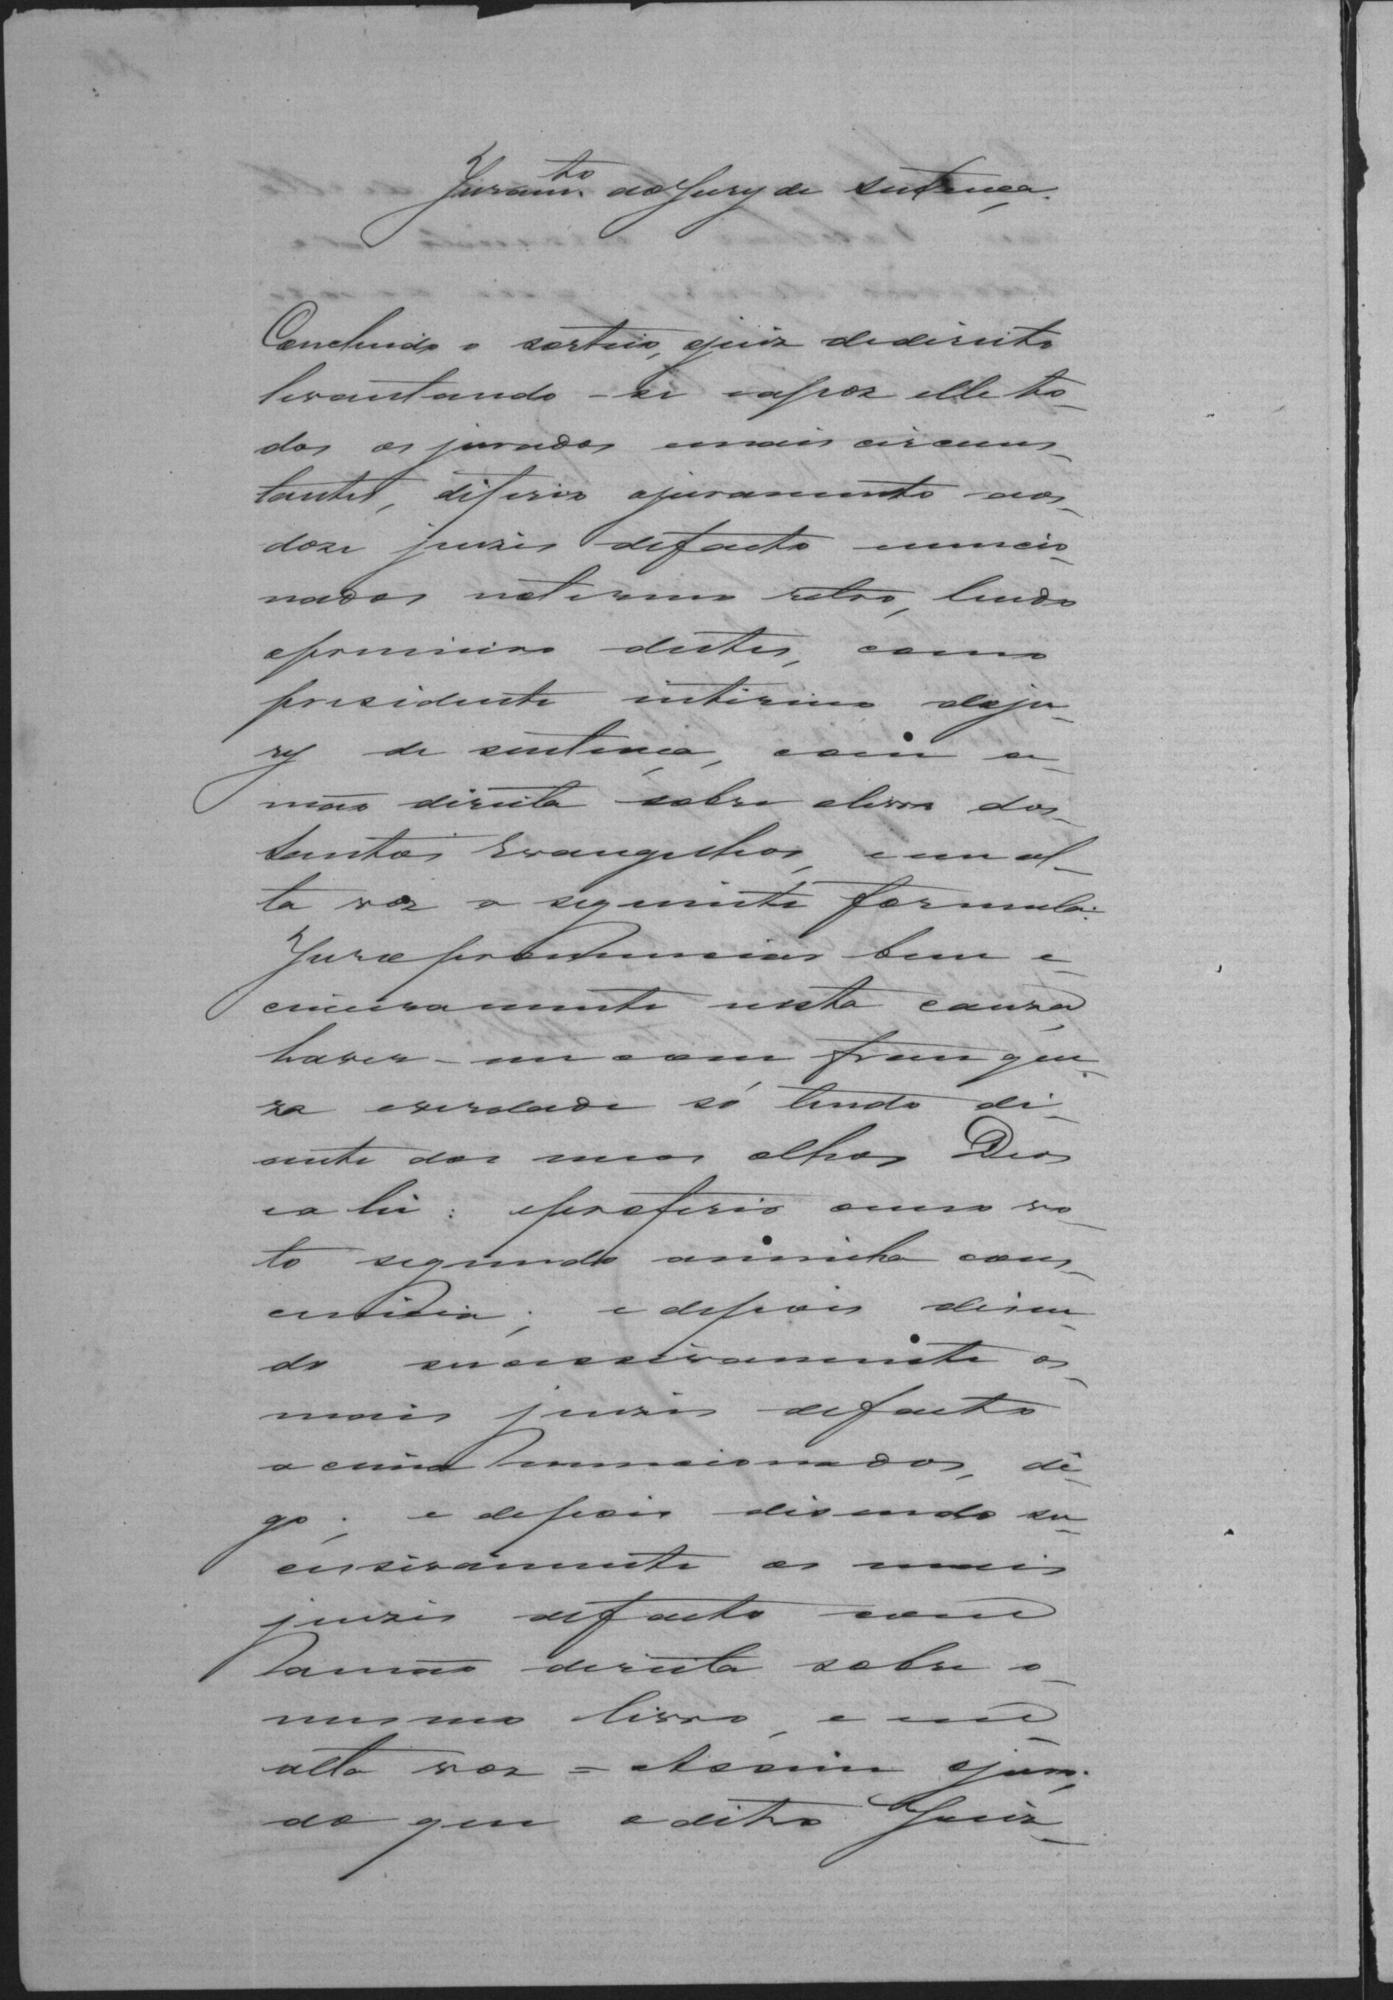 Juram.to do Jury de sentença.
Concluido o sorteio, o juiz de direito
levantando-se e após elle to-
dos os jurados e mais circuns-
tantes, diferio o juramento aos
doze juizes de facto mencio-
nados no termo retro, lendo
o primeiro destes, como
presidente interino do ju-
ry de sentença, com a
mão direita sobre o livro dos
Santos Evangelhos, e em al-
ta voz a seguinte formula:
Juro pronunciar bem e
sinceramente nesta causa,
haver-me com franque-
za e verdade só tendo di-
ante dos meos olhos Deos
e a lei: e proferir o meo vo-
to segundo a minha cons-
ciencia; e depois disen-
do successivamente os
mais juizes de facto
acima mencionados, di-
go; e depois disendo su-
cessivamente os mais
juizes de facto com
a mão dereita sobre o
mesmo livro, e em
alta voz = Assim o juro;
do que o dito Juiz